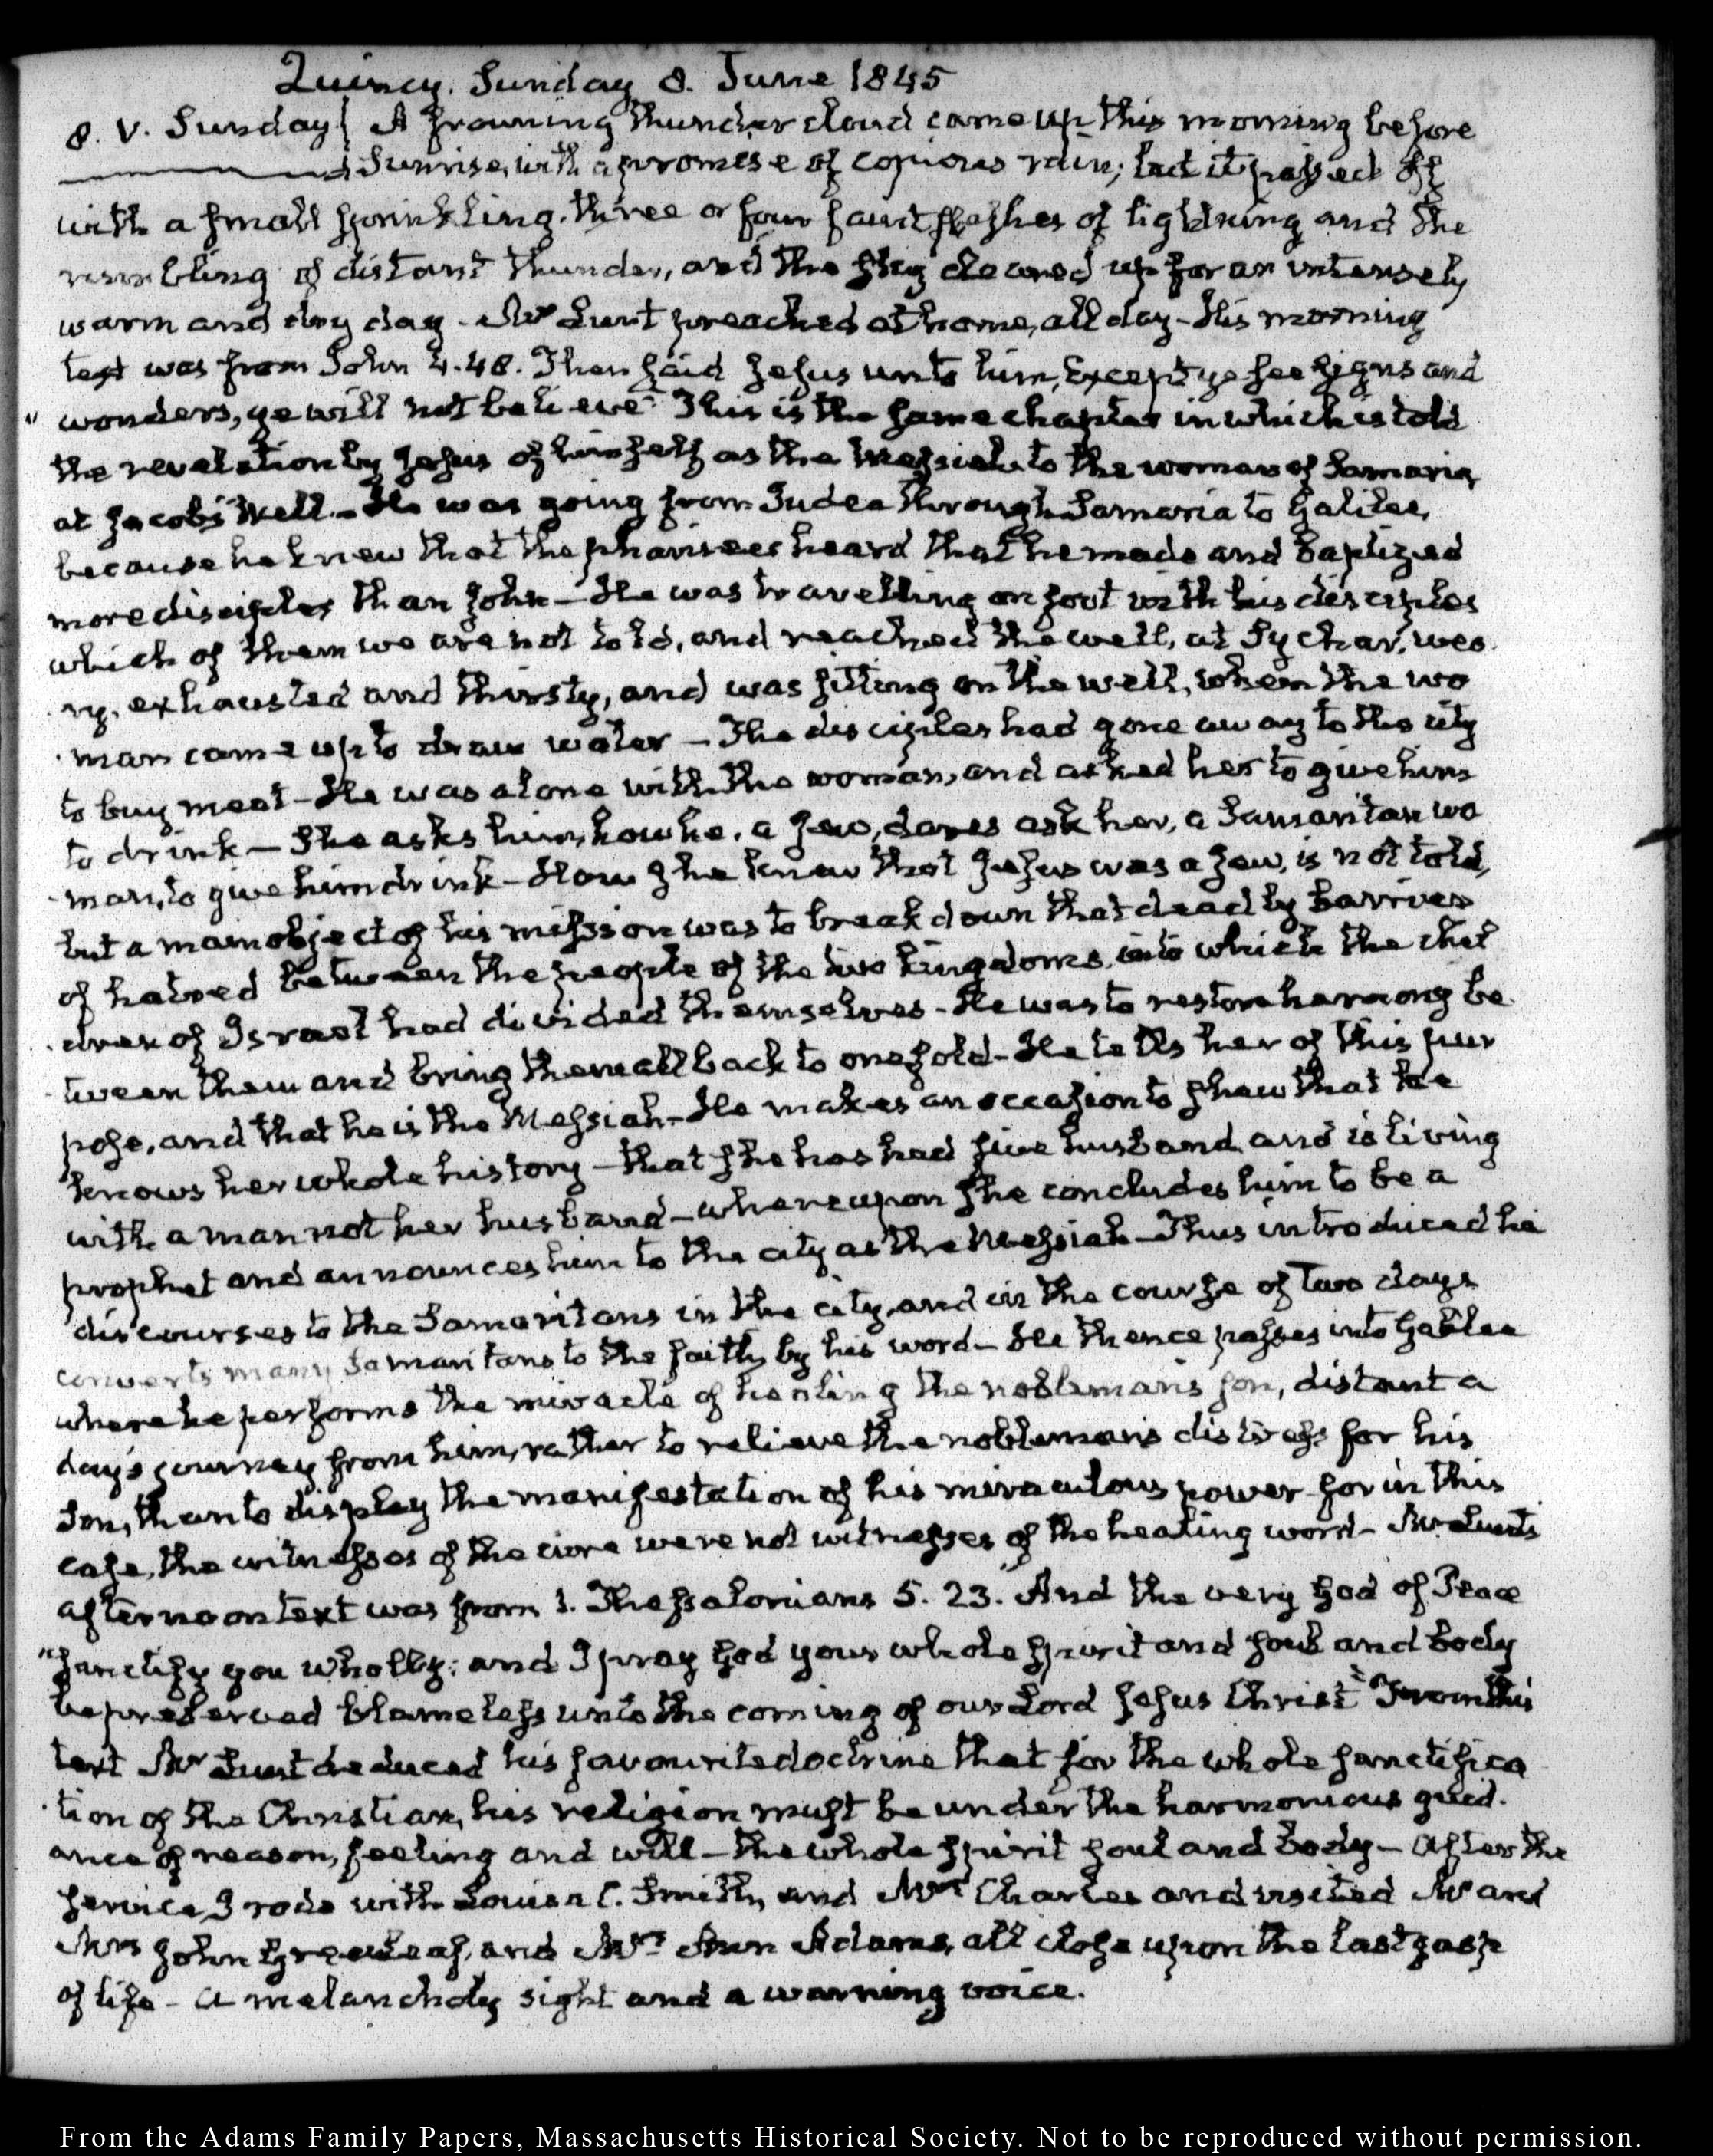 Quincy. Sunday 8. June 1845
8. V. Sunday} A frowning thunder cloud came up this morning before
Sunrise, with a promise of copious rain; but it passed off
with a small sprinkling. three or four faint flashes of lightning and the
rumbling of distant thunder, and the sky cleared up for an intensely
warm and dry day - Mr Lunt preached at home, all day - His morning
text was from John 4.48. Then said Jesus unto him, Except ye see signs and
" wonders, ye will not believe" This is the same chapter in which is told
the revelation by Jesus of himself as the Messiah to the woman of Samaria
at Jacob's Well. - He was going from Judea through Samaria to Galilee,
because he knew that the pharisees heard that he made and baptized
more disciples than John - He was travelling on foot with his disciples
which of them we are not told, and reached the well, at Sychar, wea
ry, exhausted and thirsty, and was sitting on the well, when the wo
man came up to draw water - The disciples had gone away to the city
to buy meat - He was alone with the woman, and asked her to give him
to drink - She asks him, how he, a Jew, dares ask her, a Samaritan wo
man, to give him drink - How she knew that Jesus was a Jew, is not told,
but a main object of his mission was to break down that deadly barrier
of hatred between the people of the two kingdoms, into which the chil
dren of Israel had divided themselves - He was to restore harmony be
tween them and bring them all back to one fold - He tells her of this pur
pose, and that he is the Messiah - He makes an occasion to shew that he
knows her whole history - that she has had five husband and is living
with a man not her husband - whereupon she concludes him to be a
prophet and announces him to the city as the Messiah - Thus introduced he
discourses to the Samaritans in the city, and in the course of two days
converts many Samaritans to the faith by his word - He thence passes into Galilee
where he performs the miracle of healing the nobleman's son, distant a
day's journey from him, rather to relieve the nobleman's distress for his
Son, than to display the manifestation of his miraculous power - for in this
case, the witnesses of the cure were not witnesses of the healing word - Mr Lunt's
afternoon text was from 1. Thessalonians 5. 23. "And the very God of Peace
"sanctify you wholly: and I pray God your whole spirit and soul and body
be preserved blameless unto the coming of our Lord Jesus Christ" From this
text Mr Lunt deduced his favourite doctrine that for the whole sanctifica
tion of the Christian, his religion must be under the harmonious guid.
ance of reason, feeling and will - the whole spirit soul and body - After the
service I rode with Louisa C. Smith, and Mrs Charles and visited Mr and
Mrs John Greenleaf, and Mrs Ann Adams, all close upon the last gasp
of life - a melancholy sight and a warning voice.
From the Adams Family Papers, Massachusetts Historical Society. Not to be reproduced without permission.